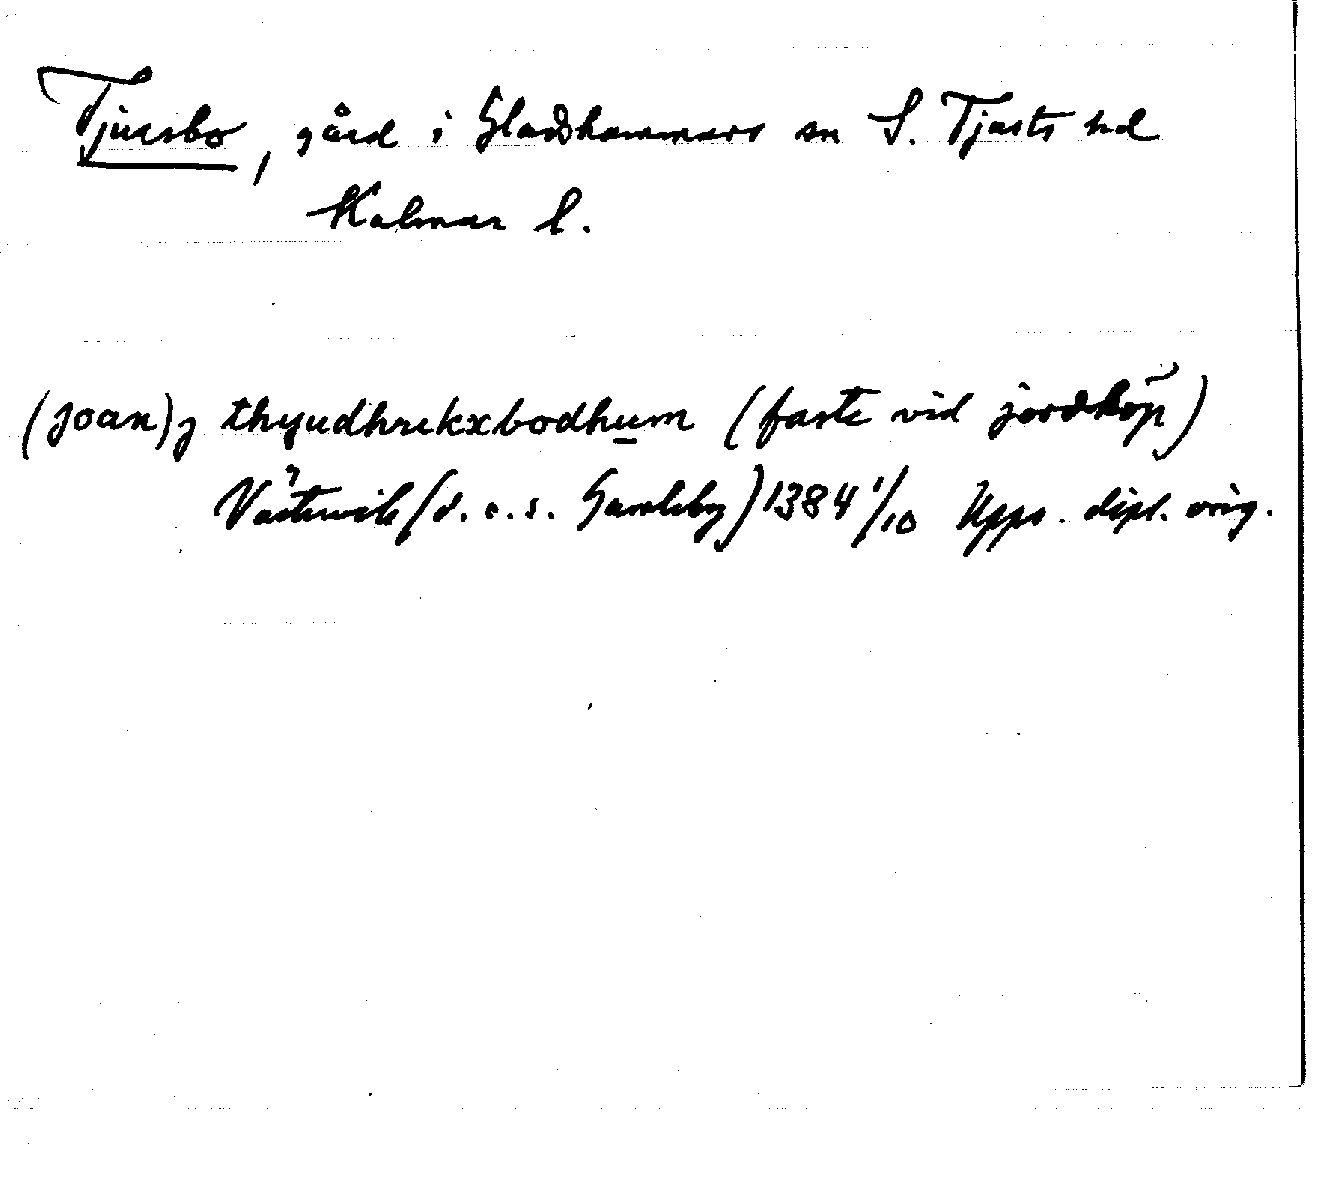 Tjursbo, gård i Gladhammars sn S. Tjusts hd
Kalmar l.
(joan) j thyudhrikxbodhum (faste vid jordköp)
Västervik (d.v.s. Gamleby) 1384 1/10 Upps. dipl. orig.